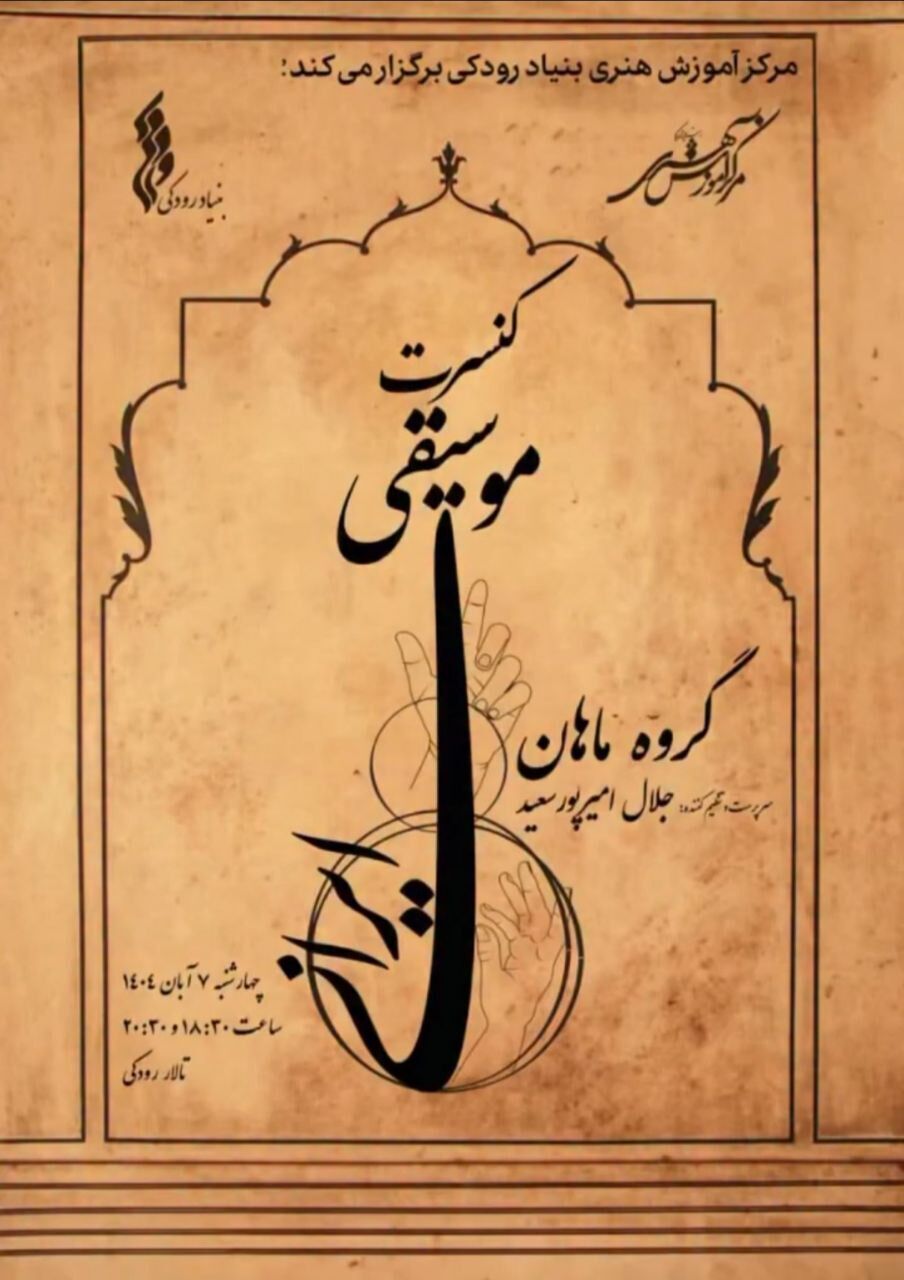 مرکز آموزش هنری بنیاد رودکی برگزار می‌کند:
مرکز آموزش هنری
بنیاد رودکی
کنسرت
موسیقی
ایران
گروه ماهان
سرپرست و تنظیم کننده: جلال امیرپورسعید
چهارشنبه ۷ آبان ۱۴۰۴
ساعت ۱۸:۳۰ و ۲۰:۳۰
تالار رودکی